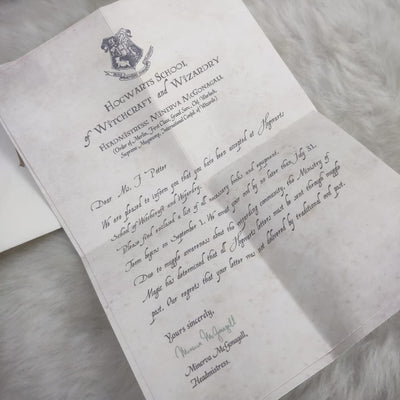 HOGWARTS SCHOOL
of WITCHCRAFT and WIZARDRY
HEADMISTRESS: MINERVA McGONAGALL
(Order of Merlin, First Class, Grand Sorc., Chf. Warlock,
Supreme Mugwump, International Confed. of Wizards)
Dear Ms. J Potter
We are pleased to inform you that you have been accepted at Hogwarts
School of Witchcraft and Wizardry.
Please find enclosed a list of all necessary books and equipment.
Term begins on September 1. We await your owl by no later than July 31.
Due to muggle awareness about the wizarding community, the Ministry of
Magic has determined that all Hogwarts letters must be sent through muggle
post. Our regrets that your letter was not delivered by traditional owl post.
Yours sincerely,
Minerva McGonagall
Minerva McGonagall,
Headmistress.